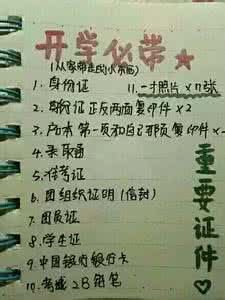 开学必带
(从家带走的小东西)
1. 身份证
11. 一寸照片×11张
2. 身份证 正反两面复印件×2
3. 户口本 第一页和自己那页复印件
4. 录取通
5. 准考证
6. 团组织证明(信封)
7. 团员证
8. 学生证
9. 中国银行银行卡
10. 2B铅笔
重要证件